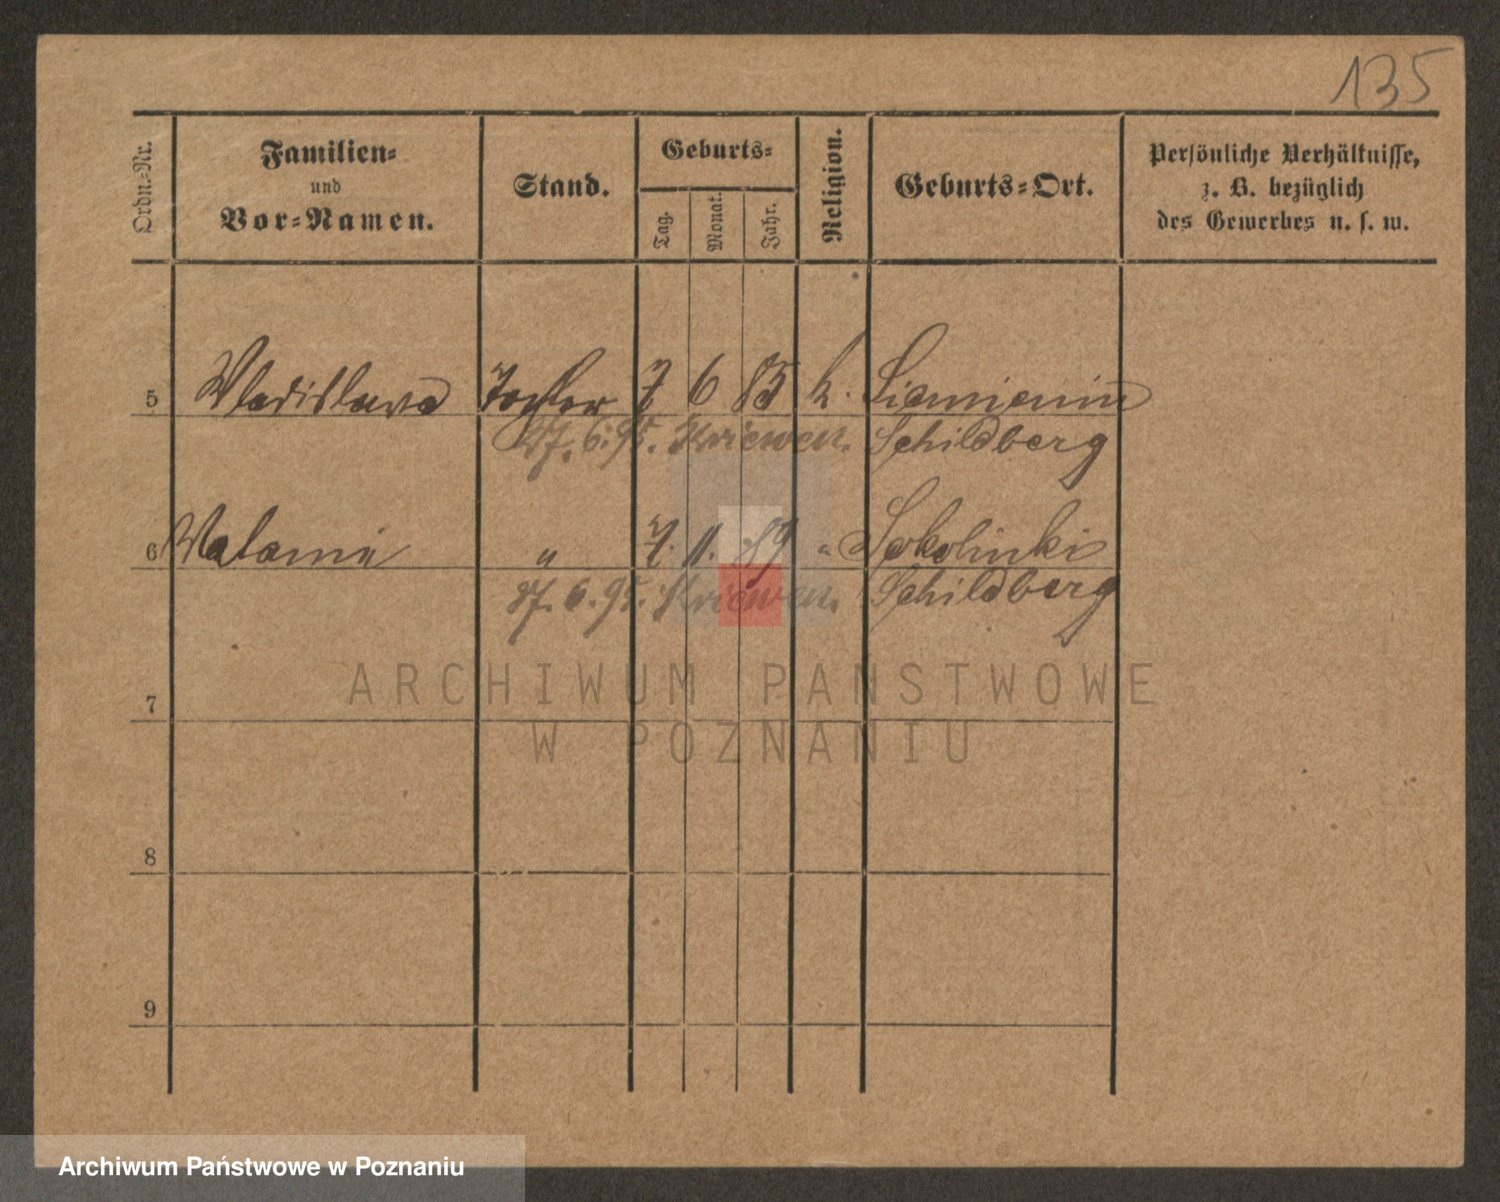 135
Ordn.-Nr.
Familien-
und
Vor-Namen.
Stand.
Geburts-
Tag.
Monat.
Jahr.
Religion.
Geburts-Ort.
Persönliche Verhältnisse,
z. B. bezüglich
des Gewerbes u. s. w.
5 Wladislawa Tochter 7 6 85 k. Siemianin
27. 6. 95. Kriewen. Schildberg
6 " 7. 11. 89 "
27. 6. 95. Kriewen. Schildberg
7
8
9
ARCHIWUM PAŃSTWOWE
W POZNANIU
Archiwum Państwowe w Poznaniu